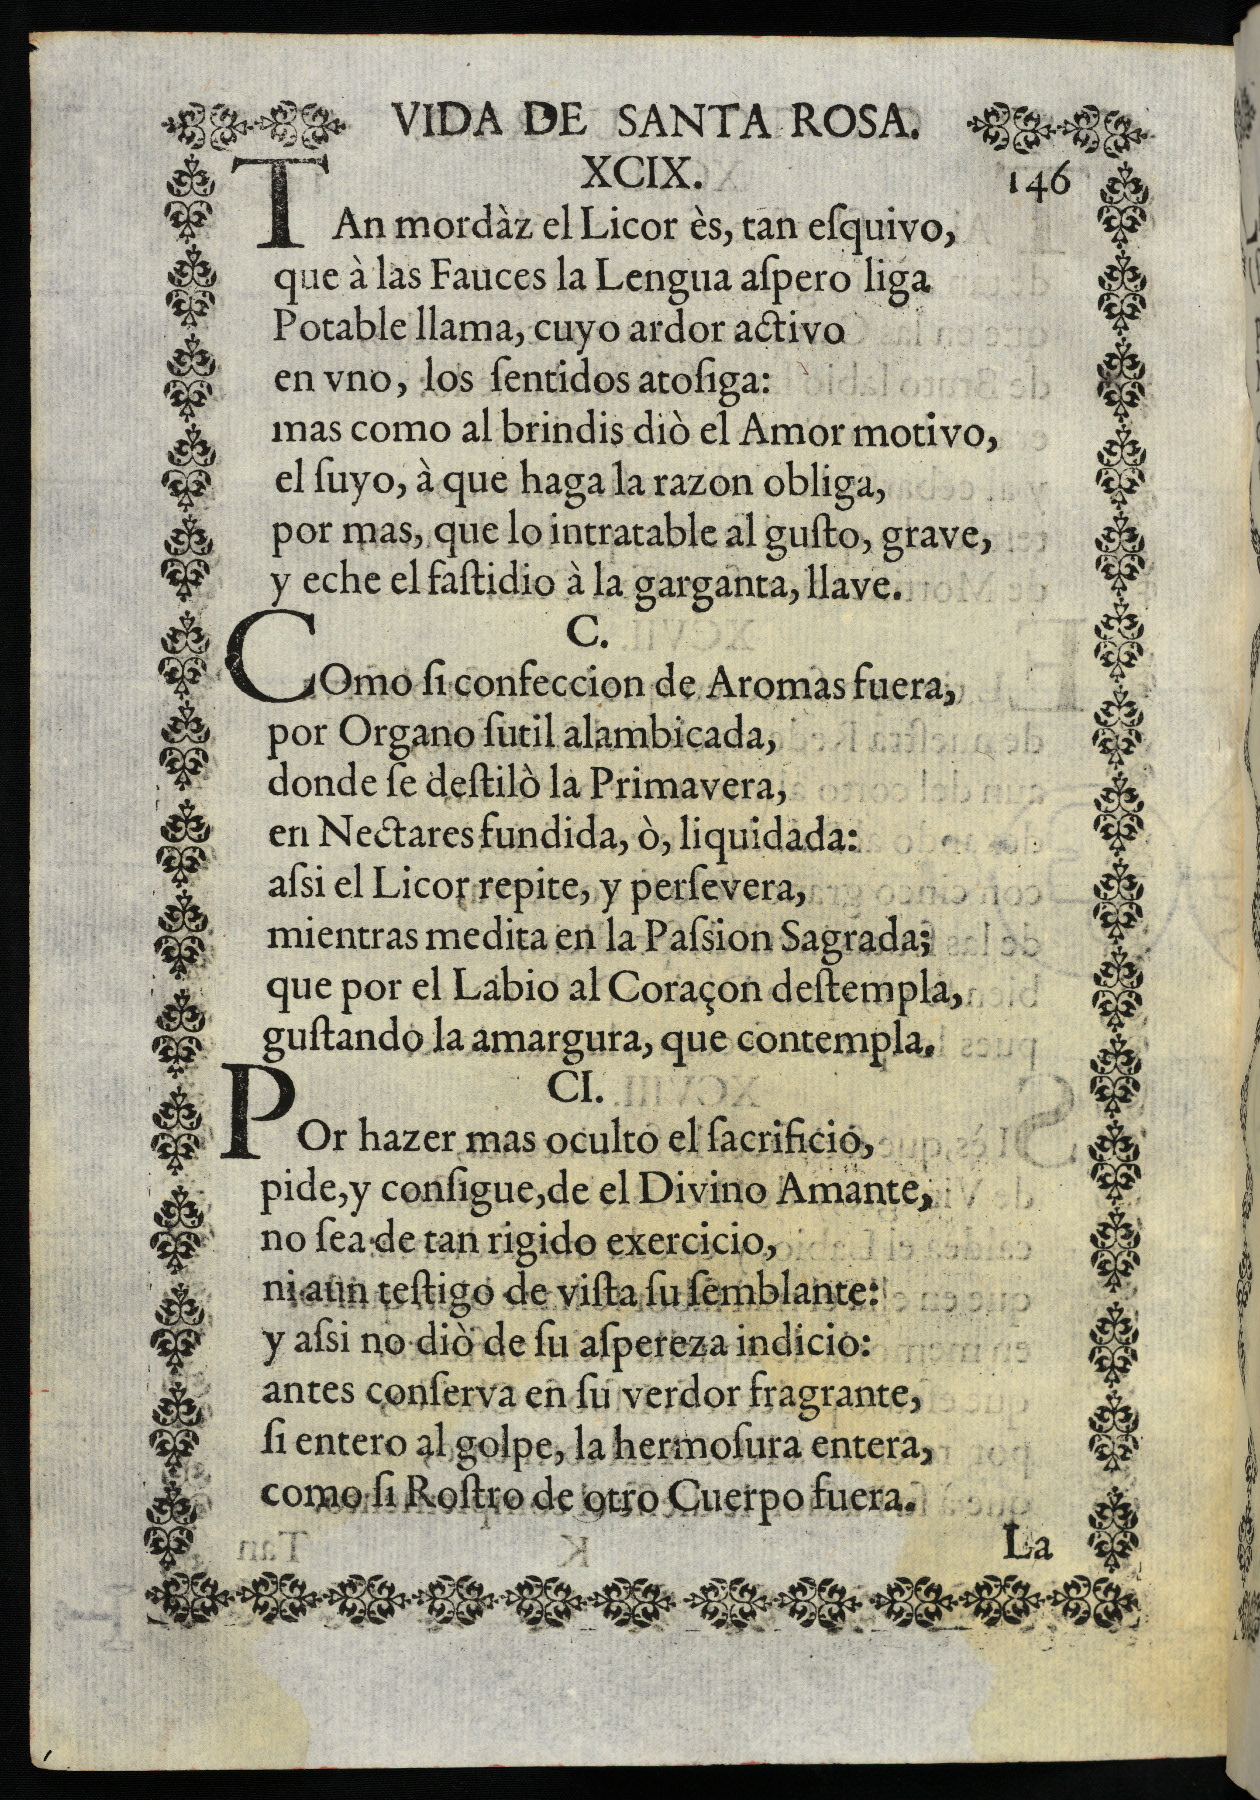 VIDA DE SANTA ROSA.
XCIX.
146
TAn mordàz el Licor ès, tan eſquivo,
que à las Fauces la Lengua aſpero liga
Potable llama, cuyo ardor activo
en vno, los ſentidos atoſiga:
mas como al brindis diò el Amor motivo,
el ſuyo, à que haga la razon obliga,
por mas, que lo intratable al guſto, grave,
y eche el faſtidio à la garganta, llave.
C.
COmo ſi confeccion de Aromas fuera,
por Organo ſutil alambicada,
donde ſe deſtilò la Primavera,
en Nectares fundida, ò, liquidada:
aſsi el Licor repite, y perſevera,
mientras medita en la Paſsion Sagrada;
que por el Labio al Coraçon deſtempla,
guſtando la amargura, que contempla.
CI.
POr hazer mas oculto el ſacrificio,
pide, y conſigue, de el Divino Amante,
no ſea de tan rigido exercicio,
ni aun teſtigo de viſta ſu ſemblante:
y aſsi no diò de ſu aſpereza indicio:
antes conſerva en ſu verdor fragrante,
ſi entero al golpe, la hermoſura entera,
como ſi Roſtro de otro Cuerpo fuera.
La